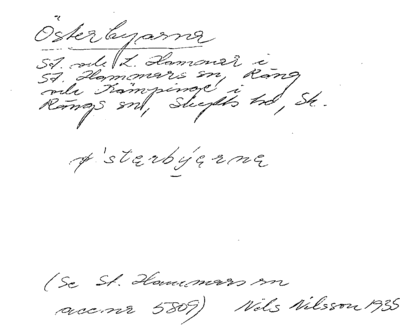 Österbyarna
St. och L. Hammar i
St. Hammars sn, Räng
och Kämpinge i
Rängs sn, Skytts hd, Sk.
ø'stərbýərnə
(Se St. Hammars sn
acc.nr 5809) Nils Nilsson 1935